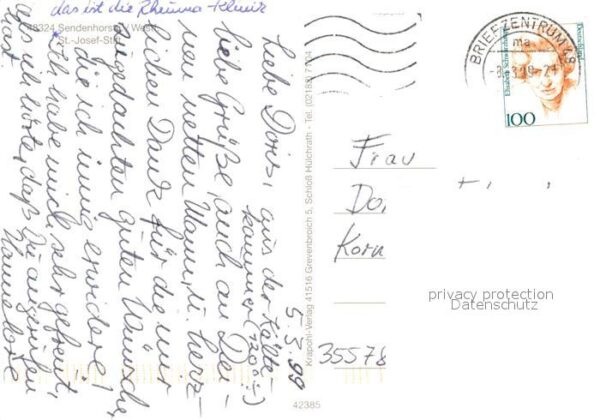 das ist die Rheuma-Klinik
48324 Sendenhorst / Westf.
St.-Josef-Stift
5.3.99
Liebe Doris, aus der Kälte-
kammer (-120°:-)
liebe Grüße, auch an Dei-
nen netten Mann u. herz-
lichen Dank für die mir
zugedachten guten Wünsche,
die ich innig erwidere.
Ich habe mich sehr gefreut,
als ich hörte, daß Du angerufen
hast. Hannelore
Krapohl-Verlag 41516 Grevenbroich 5, Schloß Hülchrath - Tel. (02182) 7704
BRIEFZENTRUM 48
ma
Deutschland
Elisabeth Schwarzhaupt
100
Frau
Do
Korn
35578
privacy protection
Datenschutz
42385